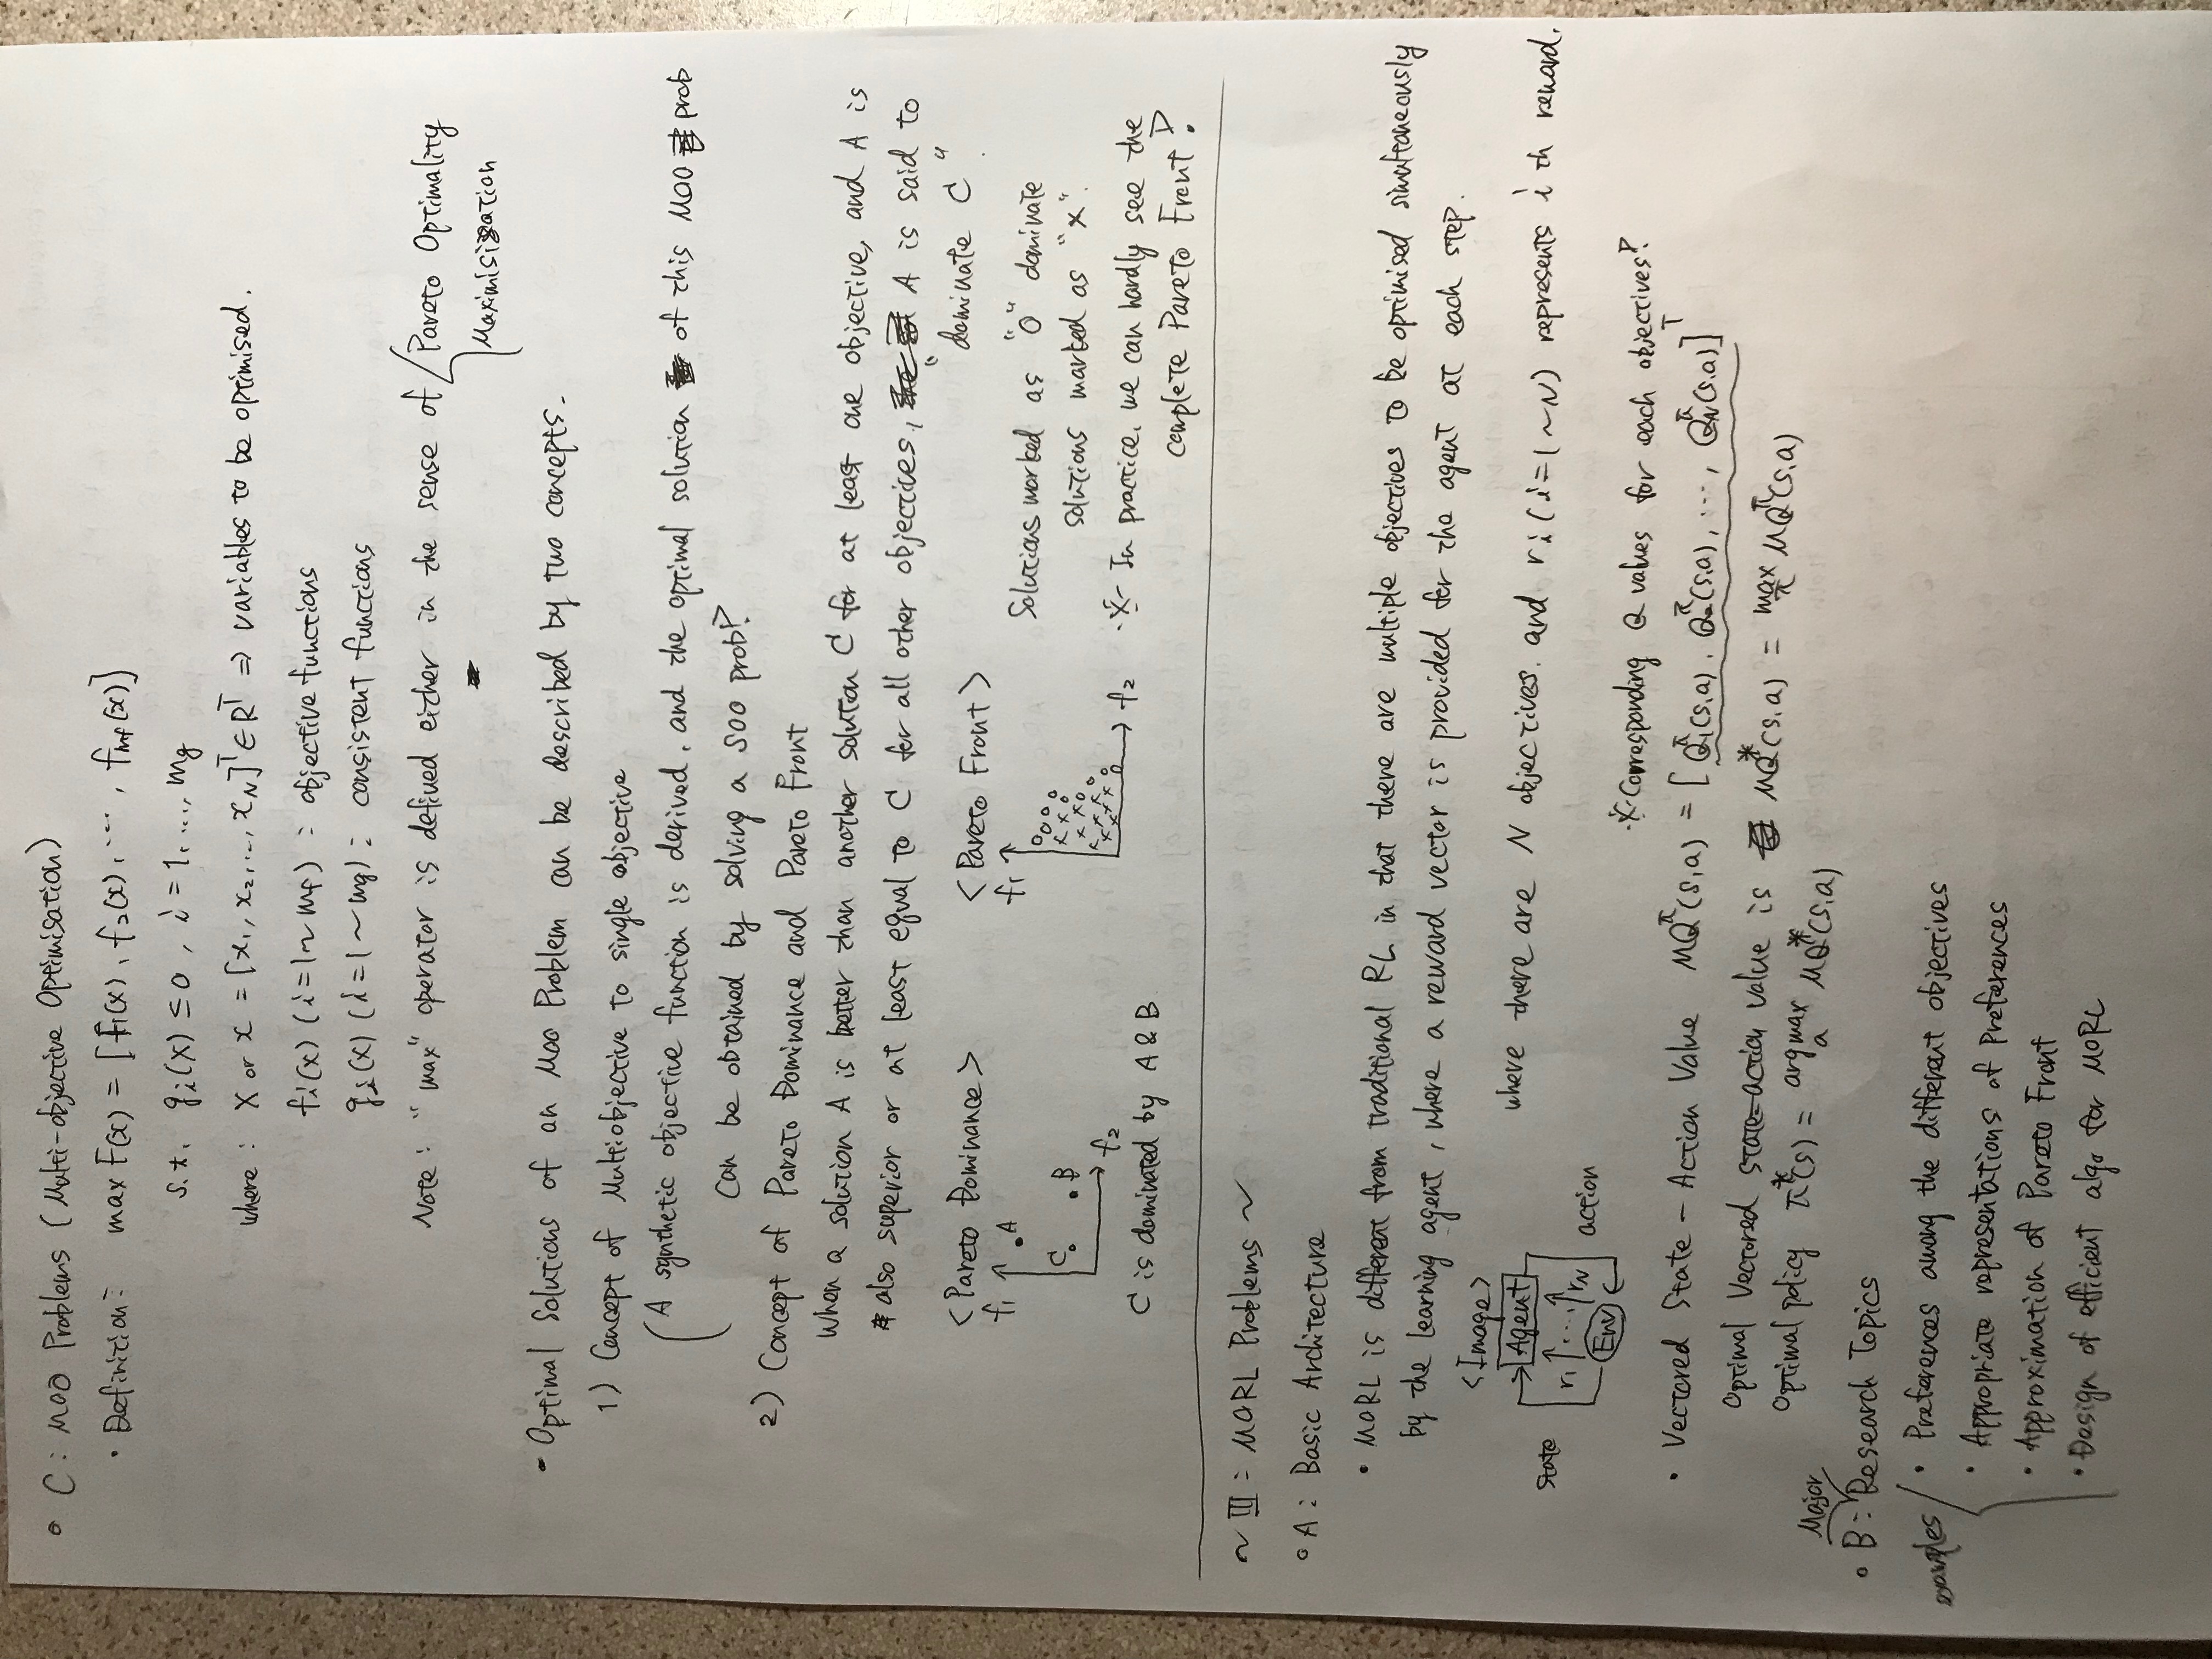 ◦ C: MOO Problems (Multi-objective Optimisation)
· Definition: max F(x) = [f₁(x), f₂(x), ..., f_mf(x)]
s.t. gᵢ(x) ≤ 0, i = 1, ..., mg
where: X or x = [x₁, x₂, ..., x_N]ᵀ ∈ Rᵀ ⇒ variables to be optimised.
fᵢ(x) (i=1~mf): objective functions
gᵢ(x) (i=1~mg): consistent functions
Note: "max" operator is defined either in the sense of { Pareto Optimality
Maximisation
· Optimal Solutions of an MOO Problem can be described by two concepts.
1) Concept of Multiobjective to single objective
(A synthetic objective function is derived, and the optimal solution of this MOO prob
can be obtained by solving a SOO prob!
2) Concept of Pareto Dominance and Pareto Front
When a solution A is better than another solution C for at least one objective, and A is
also superior or at least equal to C for all other objectives, A is said to
"dominate C".
<Pareto Dominance> <Pareto Front>
f₁ A
C B
f₂
C is dominated by A & B
f₁
f₂
Solutions marked as "O" dominate
solutions marked as "x".
※ In practice, we can hardly see the
complete Pareto Front!
~ III: MORL Problems ~
◦ A: Basic Architecture
· MORL is different from traditional RL in that there are multiple objectives to be optimised simultaneously
by the learning agent, where a reward vector is provided for the agent at each step.
<Image>
Agent
state r₁ ... r_N action
Env
where there are N objectives, and rᵢ (i=1~N) represents i th reward.
※ Corresponding Q values for each objectives!
· Vectored State-Action Value MQ^π(s,a) = [Q₁^π(s,a), Q₂^π(s,a), ..., Q_N^π(s,a)]ᵀ
Optimal Vectored state-action value is MQ*(s,a) = max_π MQ^π(s,a)
Optimal policy π*(s) = argmax_a MQ*(s,a)
Major
◦ B: Research Topics
examples
· Preferences among the different objectives
· Appropriate representations of Preferences
· Approximation of Pareto Front
· Design of efficient algo for MORL